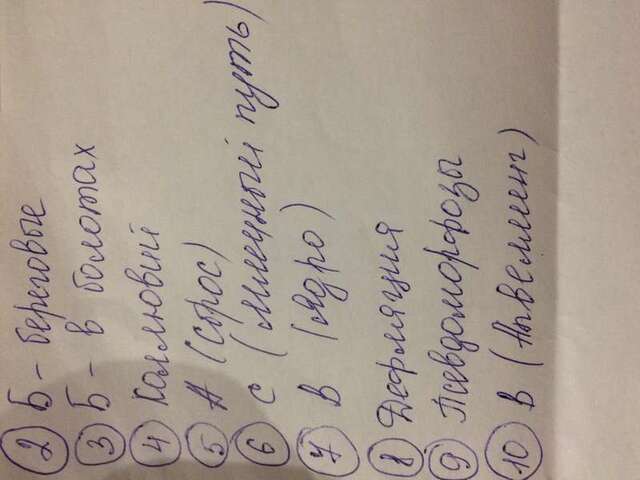 2 Б - береговые
3 Б - в болотах
4 Коллювий
5 А (Сброс)
6 С (Млечный путь)
7 В (Ядро)
8 Дефляция
9 Псевдоморфозы
10 В (Апвеллинг)